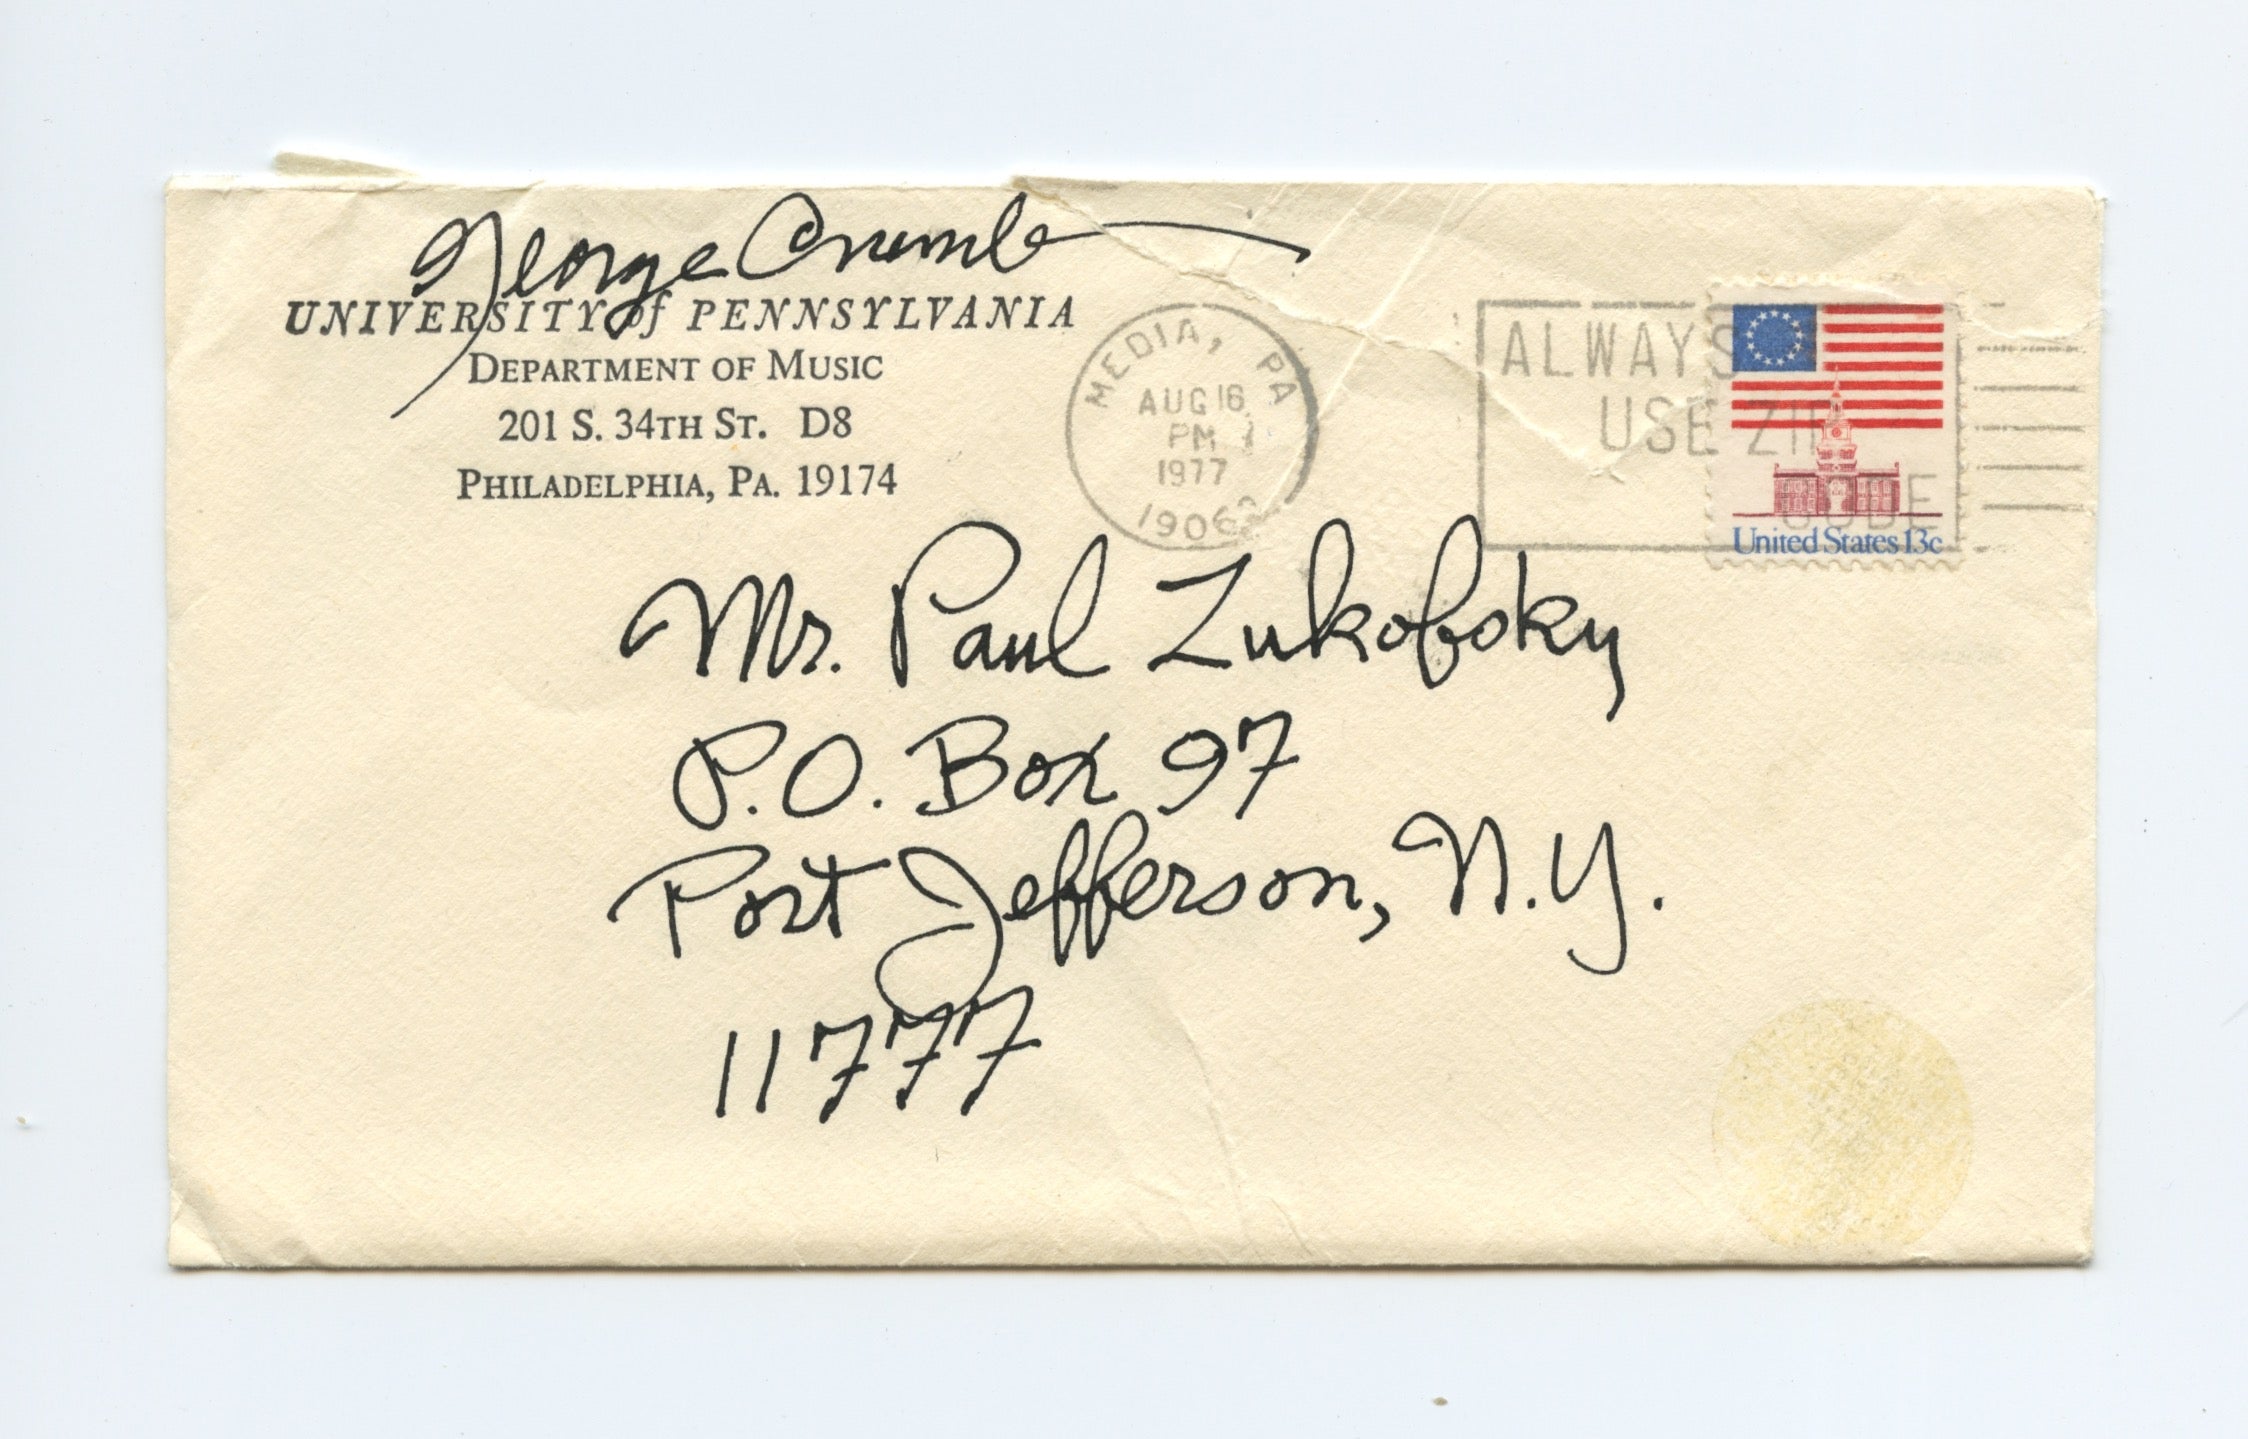 George Crumb
UNIVERSITY of PENNSYLVANIA
DEPARTMENT OF MUSIC
201 S. 34TH ST. D8
PHILADELPHIA, PA. 19174
MEDIA, PA
AUG 16
PM
1977
19063
ALWAYS
USE ZIP
CODE
United States 13c
Mr. Paul Zukofsky
P.O. Box 97
Port Jefferson, N.Y.
11777